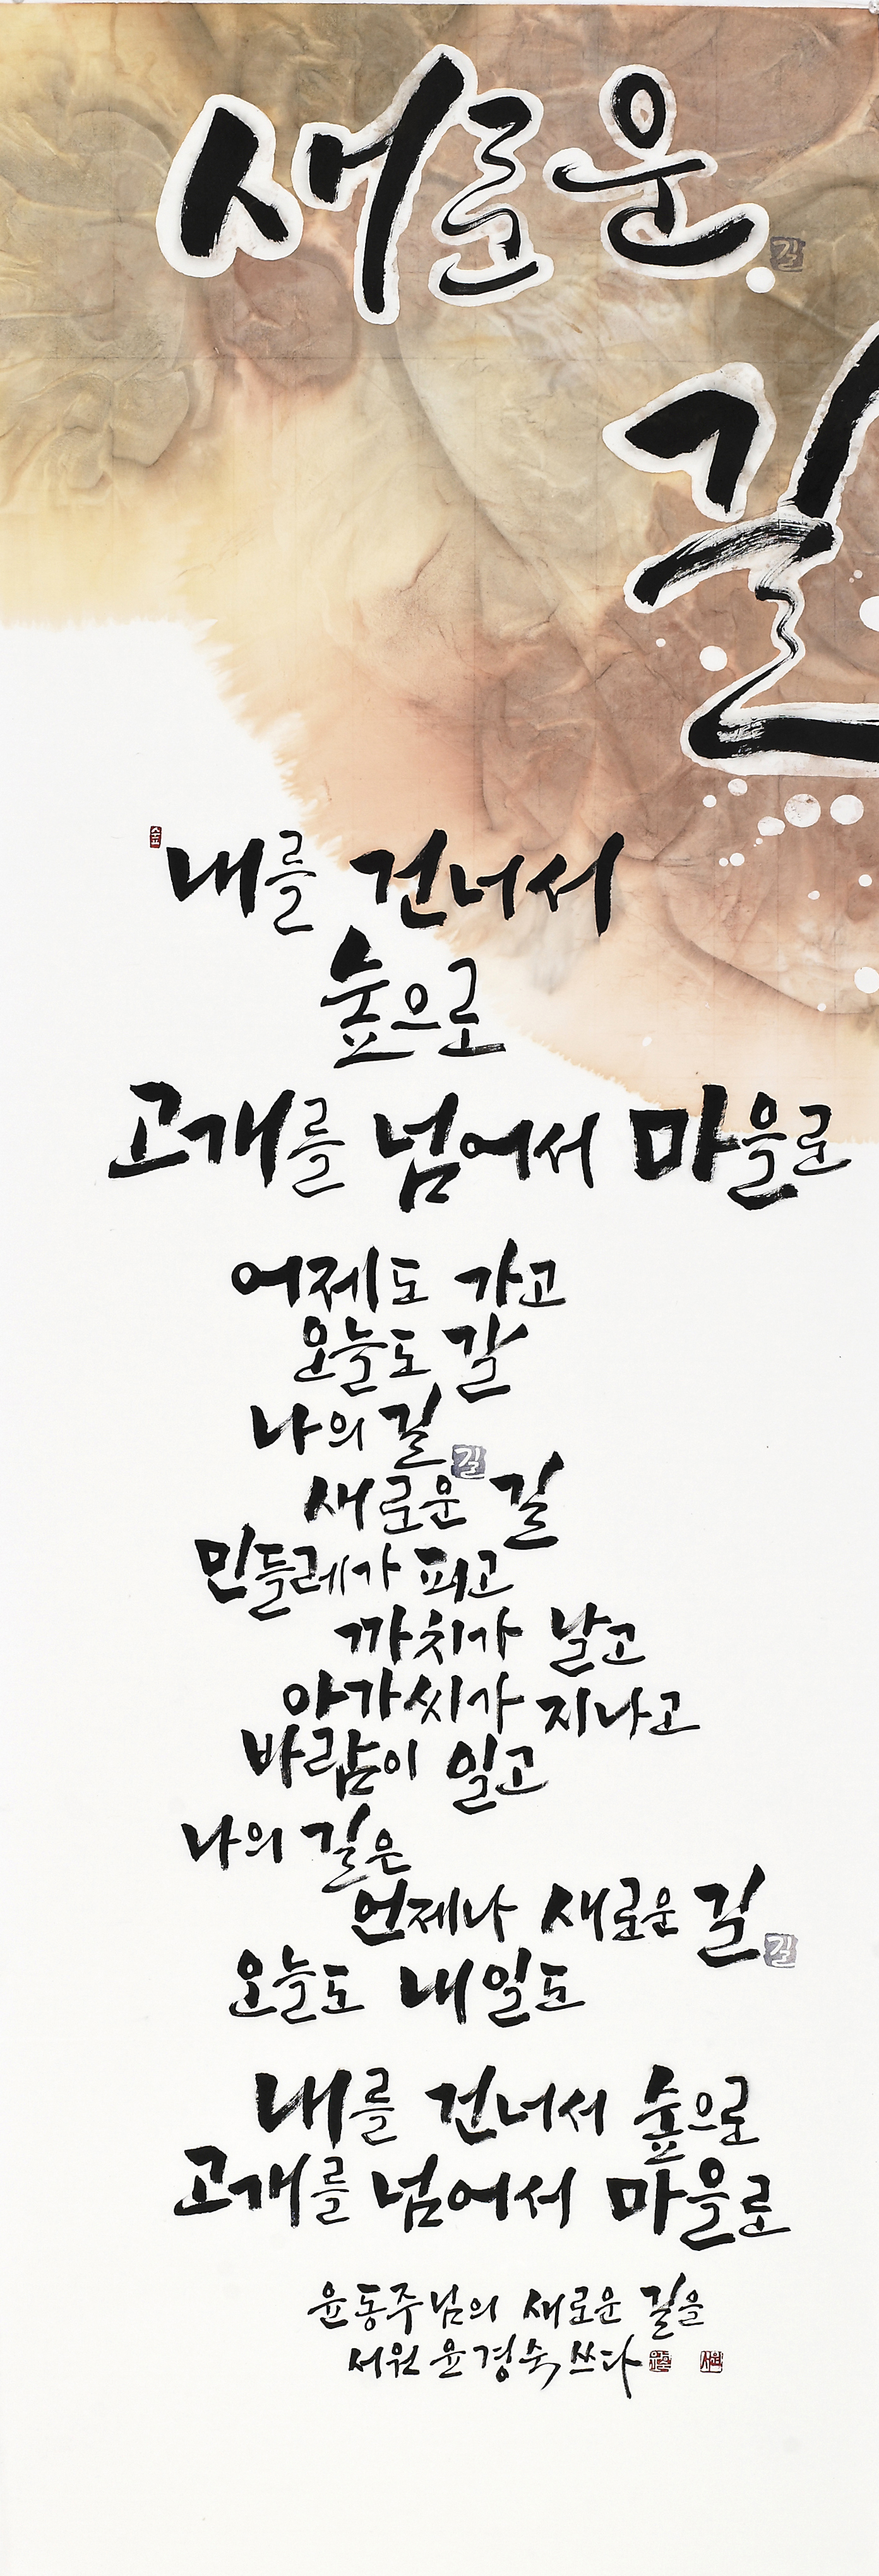 새로운
길
길
내를 건너서
숲으로
고개를 넘어서 마을로
어제도 가고
오늘도 갈
나의 길
길
새로운 길
민들레가 피고
까치가 날고
아가씨가 지나고
바람이 일고
나의 길은
언제나 새로운 길
길
오늘도 내일도
내를 건너서 숲으로
고개를 넘어서 마을로
윤동주님의 새로운 길을
서원 윤경숙 쓰다